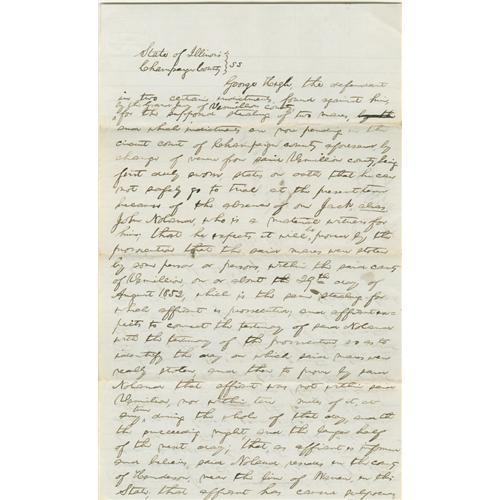 State of Illinois }
Champaign County } SS
George High, the defendant
in two certain indictments found against him
by the Grand Jury of Vermilion county
for the supposed stealing of two mares,
and which indictments are now pending in the
circuit court of Champaign county aforesaid by
change of venue from said Vermilion county, being
first duly sworn states on oath that he can
not safely go to trial at the present term
because of the absence of one Jack alias
John Noland who is a material witness for
him; that he expects it will be proven by the
prosecution that the said mares were stolen
by some person or persons, within the said county
of Vermilion on or about the 29th day of
August 1853, which is the same stealing for
which affiant is prosecuted, and affiant ex-
pects to connect the testimony of said Noland
with the testimony of the prosecution so as to
identify the day on which said mares were
really stolen, and then to prove by said
Noland that affiant was not within said
Vermilion, nor within ten miles of it, at
any time, during the whole of that day, and
the succeeding night and the larger half
of the next day; that, as affiant is informed
and believes, said Noland resides in the county
of Henderson, near the line of Mercer, in this
State, that affiant has caused